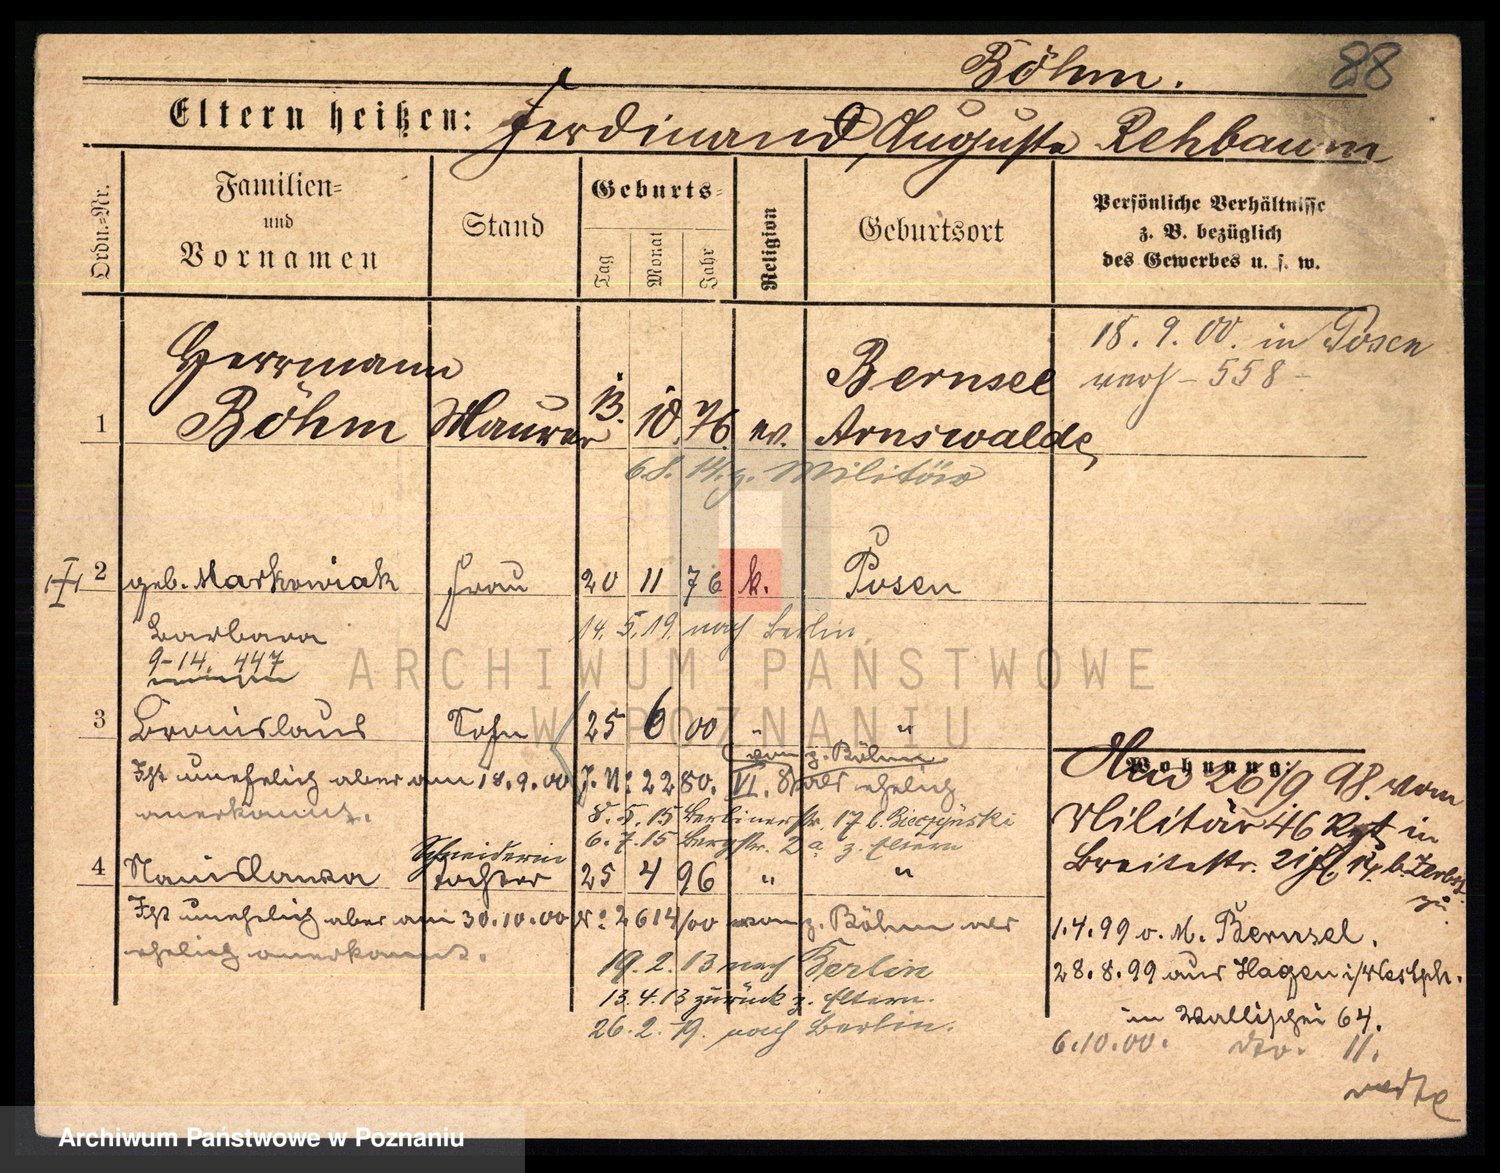 Böhm.
88
Eltern heißen: Ferdinand, Auguste Rehbaum
Ordn.=Nr.
Familien=
und
Vornamen
Stand
Geburts=
Tag
Monat
Jahr
Religion
Geburtsort
Persönliche Verhältnisse
z. B. bezüglich
des Gewerbes u. s. w.
18. 9. 00. in Posen
558
Herrmann
1 Böhm Maurer 13. 10. 76. ev. Bernsee
Arnswalde
6.8.14. z. Militär
2 geb. Markowiak Frau 20 11 76 k. Posen
Barbara
14. 5. 19. nach Berlin
9-14. 447
3 Bronislaus Sohn 25 6 00 " "
von z. Böhm
Ist unehelich aber am 18.9.00 J. N: 2280. VI. als ehelich
anerkannt.
8. 5. 15 Berlinerstr. 17 b. Bieczynski
6. 7. 15 Bergstr. 2a z. Eltern
Schneiderin
4 Stanislawa Tochter 25 4 96 " "
Ist unehelich aber am 30.10.00 No 2614/00 von z. Böhm als
ehelich anerkannt.
19. 2. 13 nach Berlin
13. 4. 13 zurück z. Eltern.
26. 2. 19. nach Berlin.
Wohnung:
26/9 98. vom
Militär 46 Rgt in
Breitestr. 21
1.4.99 v. M. Bernsee.
28. 8. 99 aus Hagen i/Westph.
in Wallischei 64.
6.10.00. dto. 11.
ARCHIWUM PAŃSTWOWE
W POZNANIU
Archiwum Państwowe w Poznaniu